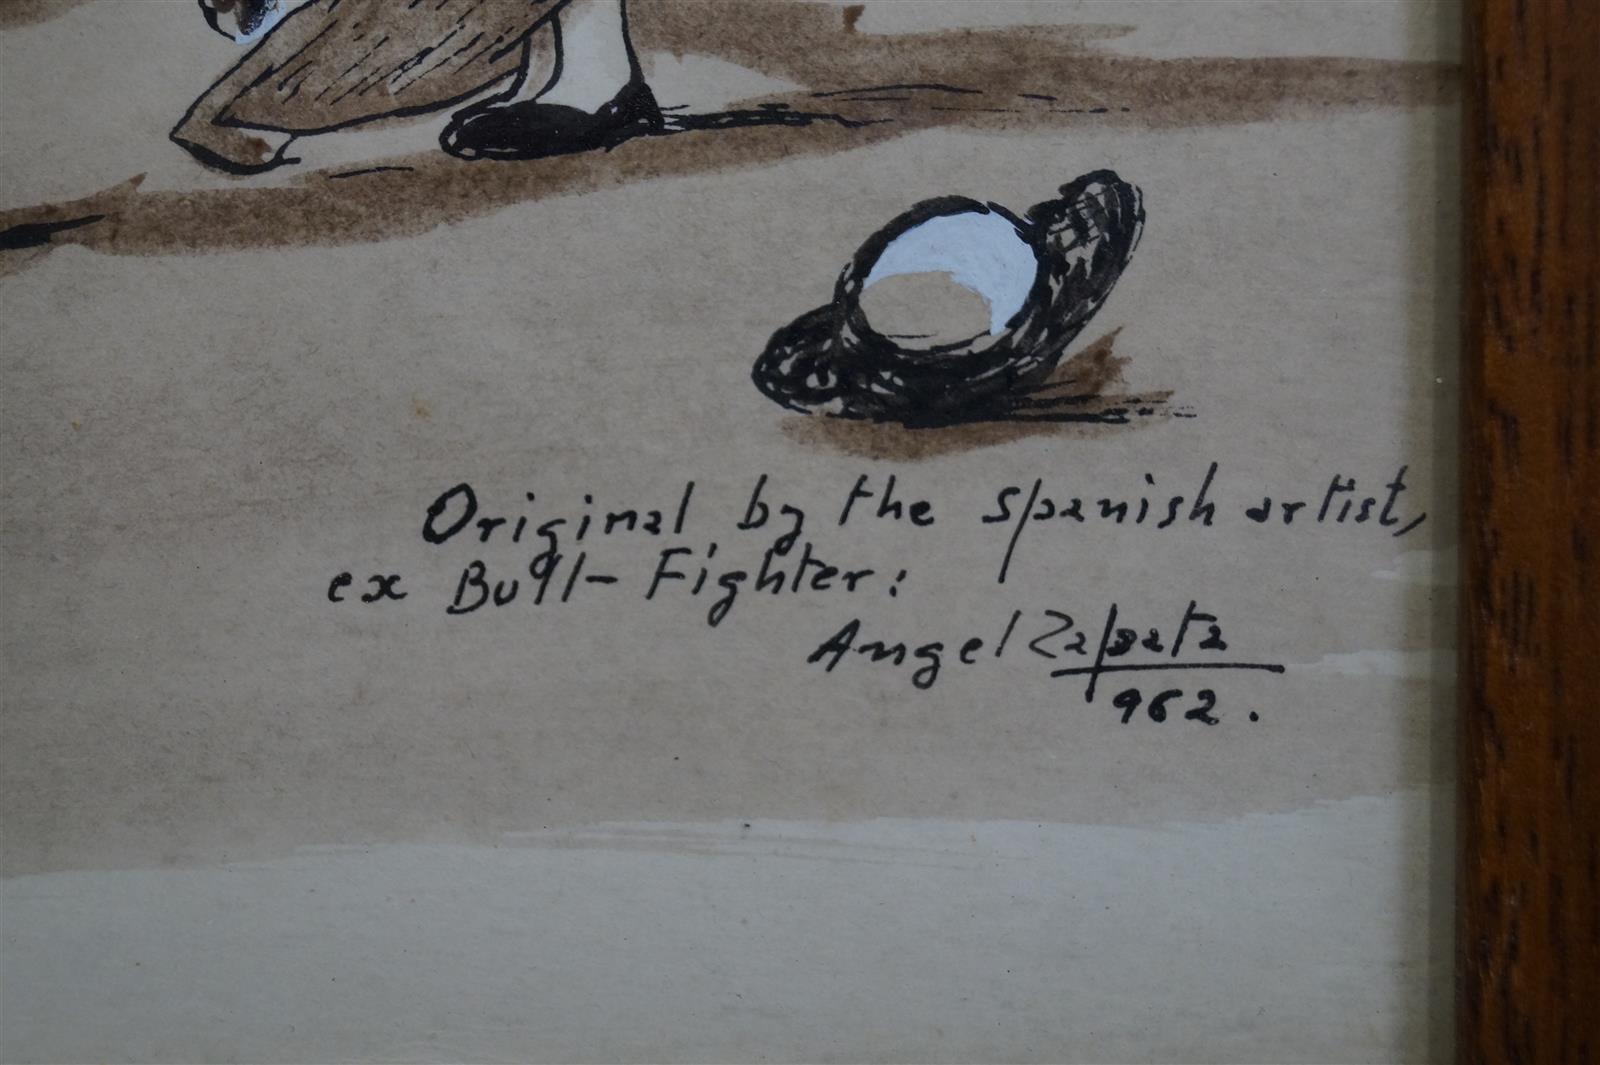 Original by the Spanish artist,
ex Bull-Fighter:
Angel Zapata
962.